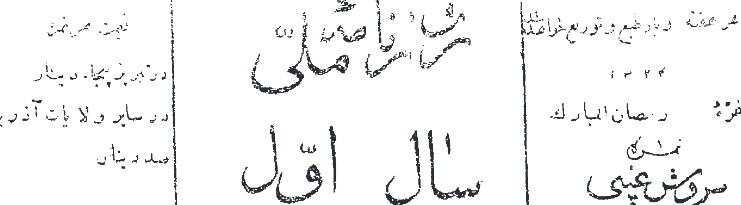 هر هفته دو بار طبع و توزیع خواهد شد
۱۳۲۴
غره رمضان المبارک
نمره
سروش غیبی
روزنامه ملّی
سال اوّل
قیمت هر نمره
در تبریز پنجاه دینار
در سایر ولایات
صد دینار